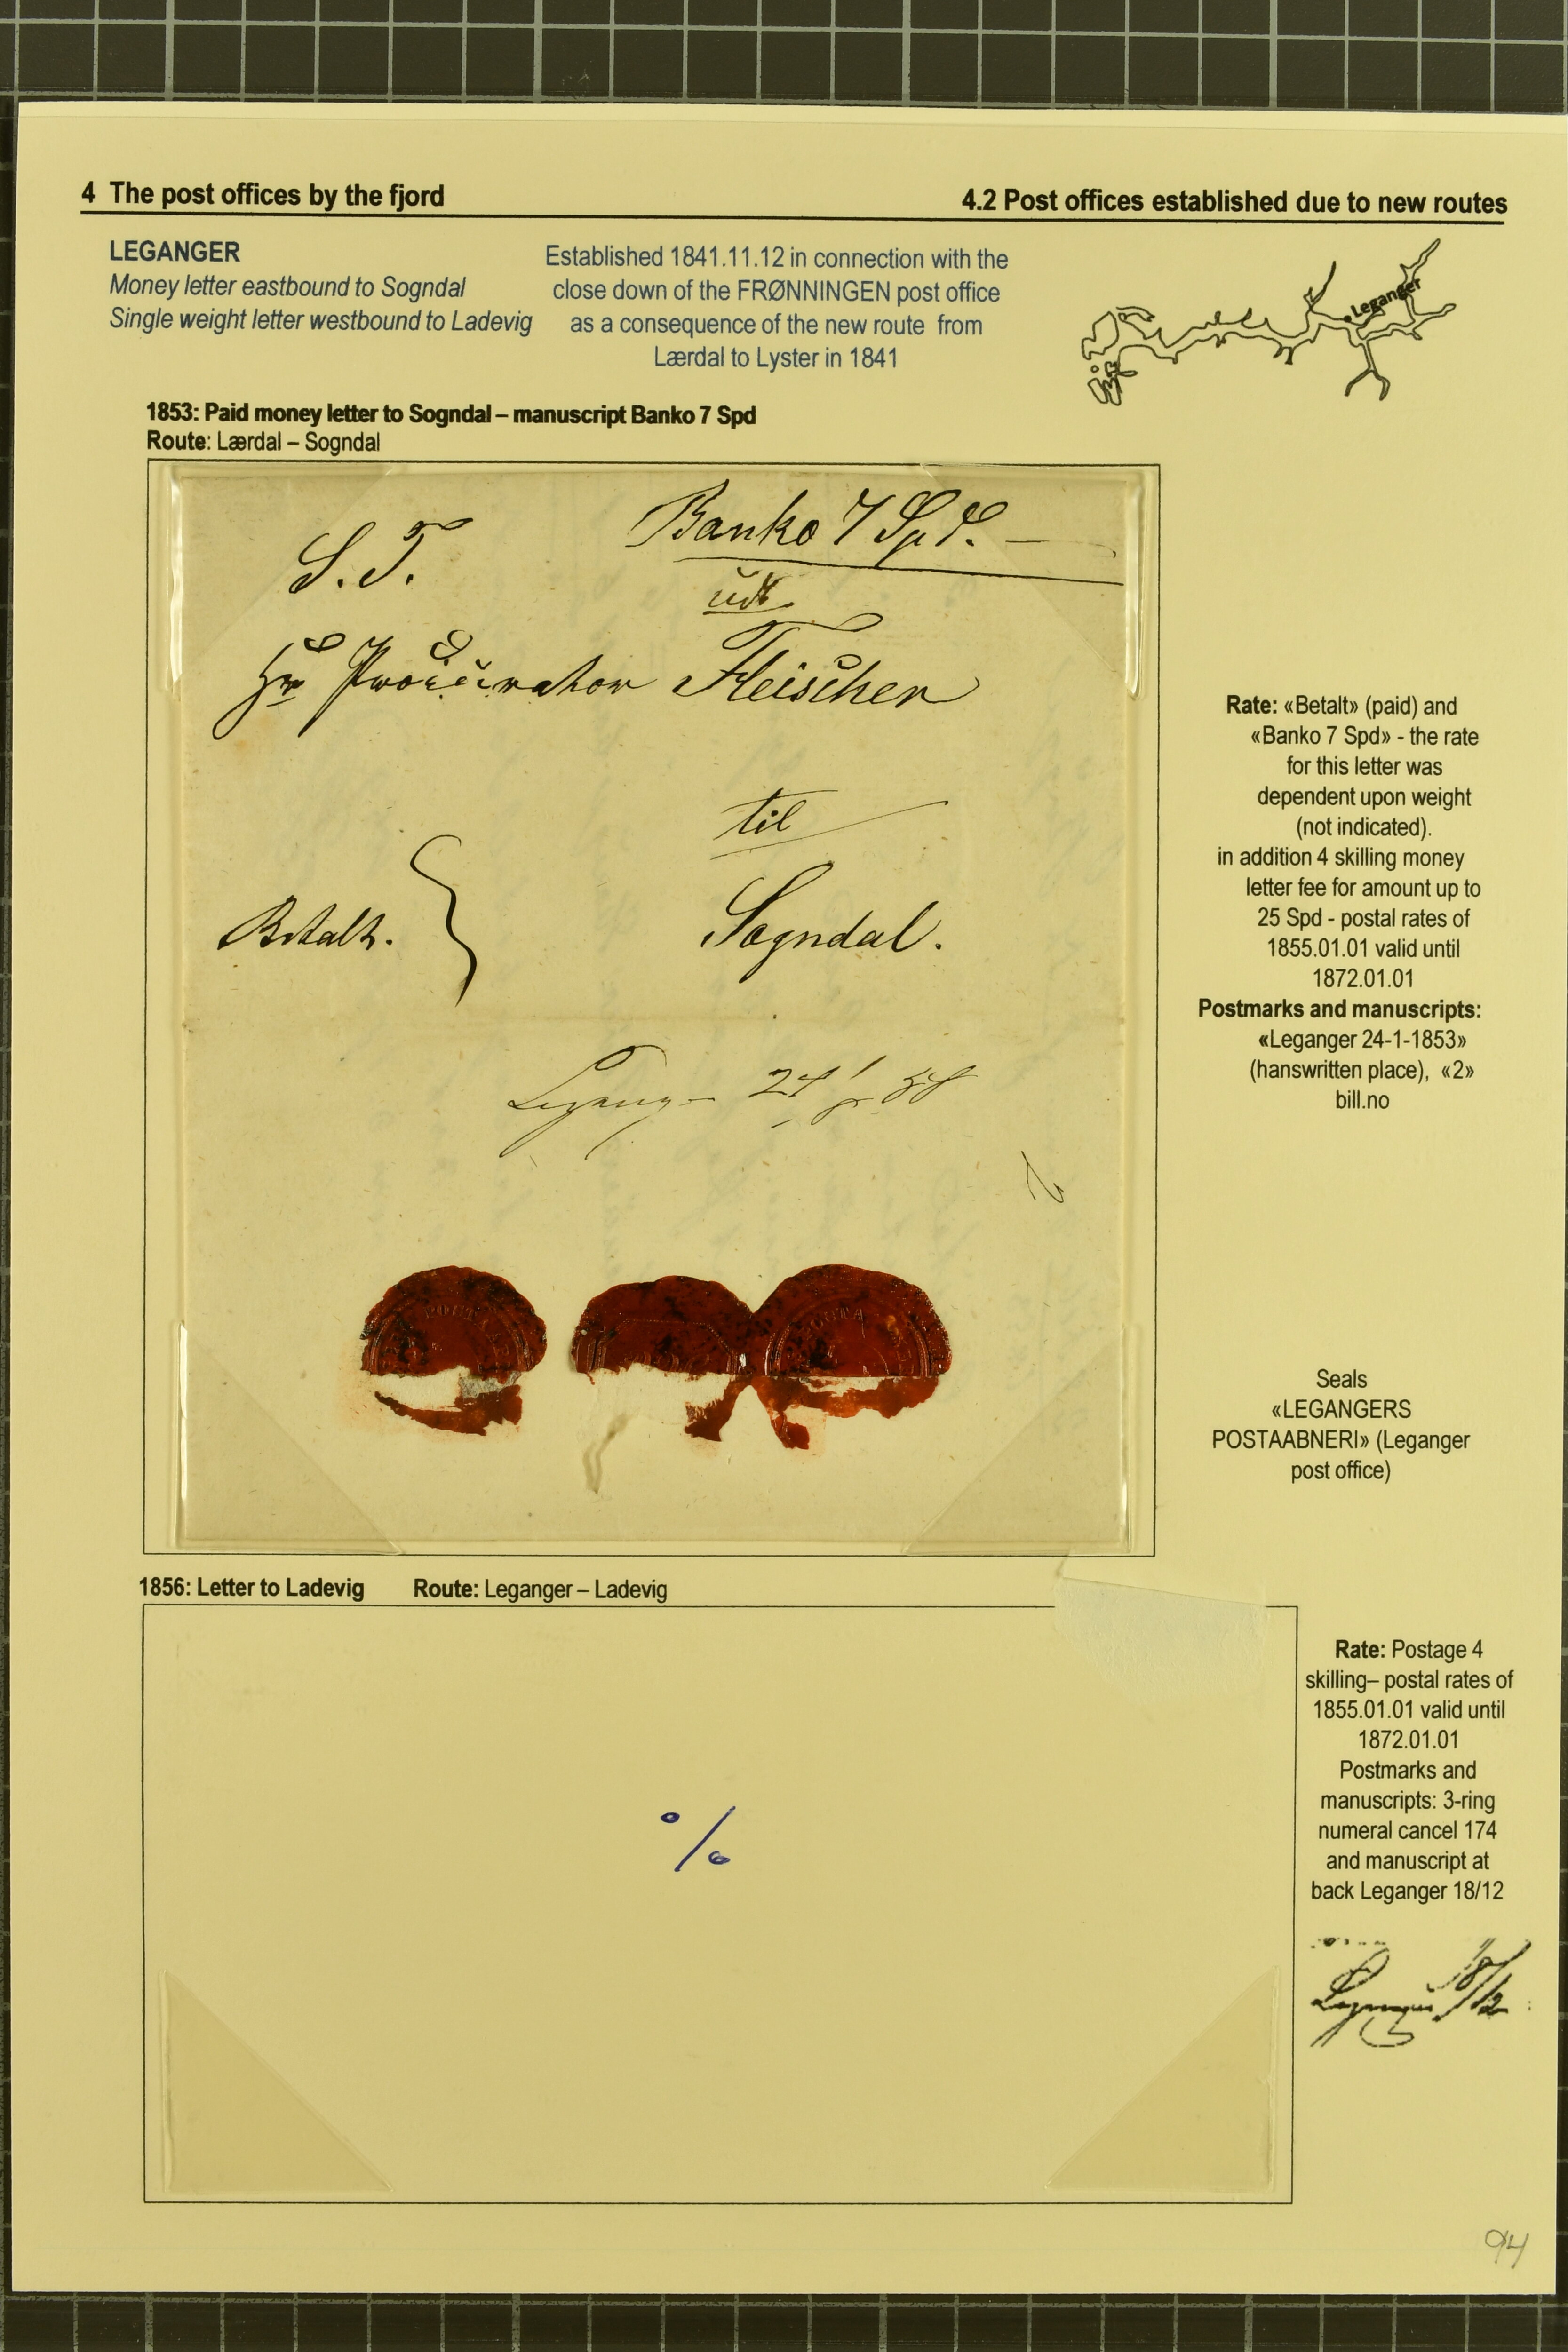 4 The post offices by the fjord
4.2 Post offices established due to new routes
LEGANGER
Money letter eastbound to Sogndal
Single weight letter westbound to Ladevig
Established 1841.11.12 in connection with the
close down of the FRØNNINGEN post office
as a consequence of the new route from
Lærdal to Lyster in 1841
Leganger
1853: Paid money letter to Sogndal – manuscript Banko 7 Spd
Route: Lærdal – Sogndal
Banko 7 Spd. —
S. T.
Hr Procurator Fleischer
til
Betalt.
Sogndal.
Leganger 24/1 53
2
Rate: «Betalt» (paid) and
«Banko 7 Spd» - the rate
for this letter was
dependent upon weight
(not indicated).
in addition 4 skilling money
letter fee for amount up to
25 Spd - postal rates of
1855.01.01 valid until
1872.01.01
Postmarks and manuscripts:
«Leganger 24-1-1853»
(hanswritten place), «2»
bill.no
Seals
«LEGANGERS
POSTAABNERI» (Leganger
post office)
1856: Letter to Ladevig Route: Leganger – Ladevig
%
Rate: Postage 4
skilling– postal rates of
1855.01.01 valid until
1872.01.01
Postmarks and
manuscripts: 3-ring
numeral cancel 174
and manuscript at
back Leganger 18/12
Leganger 18/12
94